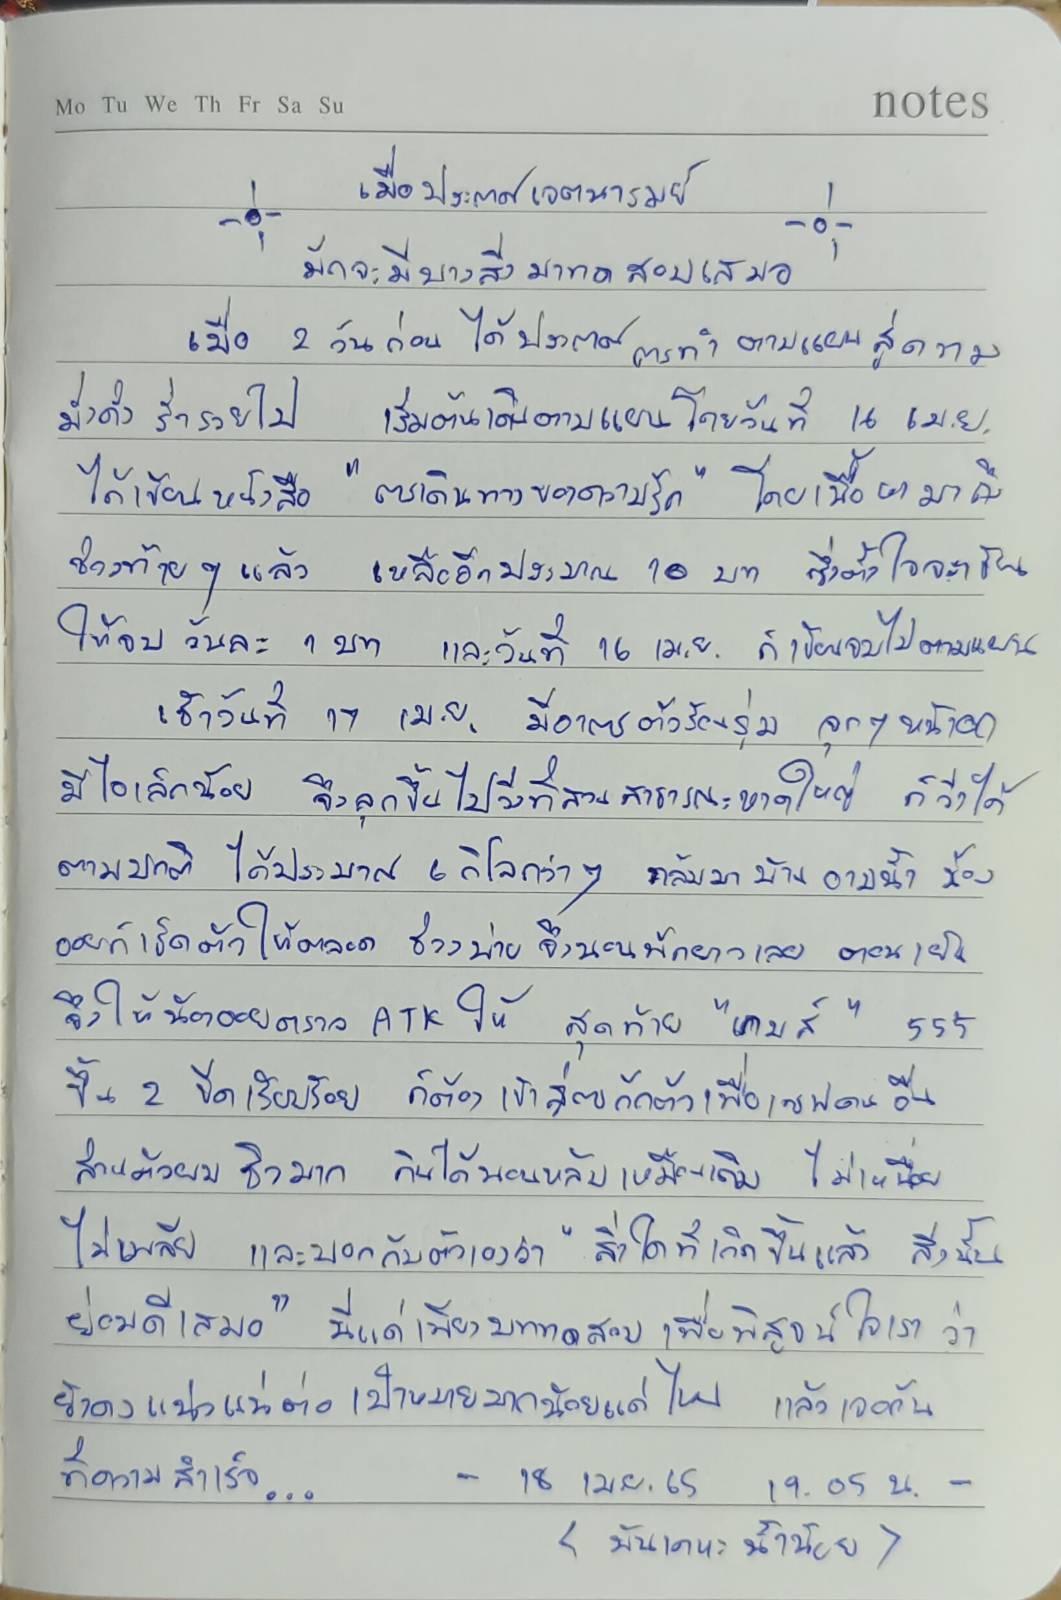 Mo Tu We Th Fr Sa Su
notes
เมื่อประกาศเจตนารมย์
มักจะมีบางสิ่งมาทดสอบเสมอ
เมื่อ 2 วันก่อน ได้ประกาศการทำตามแผนสู่ความ
มั่งคั่ง ร่ำรวยไป เริ่มต้นเดินตามแผนโดยวันที่ 16 เม.ย.
ได้เขียนหนังสือ "การเดินทางของความรัก" โดยเนื้อหามาถึง
ช่วงท้ายๆแล้ว เหลืออีกประมาณ 10 บท ซึ่งตั้งใจจะเขียน
ให้จบวันละ 1 บท และวันที่ 16 เม.ย. ก็เขียนจบไปตามแผน
เช้าวันที่ 17 เม.ย. มีอาการตัวร้อนรุ่ม จุกๆหน้าอก
มีไอเล็กน้อย จึงลุกขึ้นไปวิ่งที่สวนสาธารณะหาดใหญ่ ก็วิ่งได้
ตามปกติ ได้ประมาณ 6 กิโลกว่าๆ กลับมาบ้านอาบน้ำ น้อง
ออยก็เช็ดตัวให้ตลอด ช่วงบ่ายจึงนอนพักยาวเลย ตอนเย็น
จึงให้น้องออยตรวจ ATK ให้ สุดท้าย "เกมส์" 555
ขึ้น 2 ขีดเรียบร้อย ก็ต้องเข้าสู่การกักตัวเพื่อเซฟคนอื่น
ส่วนตัวผมชิวมาก กินได้นอนหลับเหมือนเดิม ไม่เหนื่อย
ไม่เพลีย และบอกกับตัวเองว่า "สิ่งใดที่เกิดขึ้นแล้ว สิ่งนั้น
ย่อมดีเสมอ" นี่แค่เพียงบททดสอบเพื่อพิสูจน์ใจเราว่า
ยังคงแน่วแน่ต่อเป้าหมายมากน้อยแค่ไหน แล้วเจอกัน
ที่ความสำเร็จ...  - 18 เม.ย. 65 19.05 น. -
< พันเดหะ น้ำน้อย >